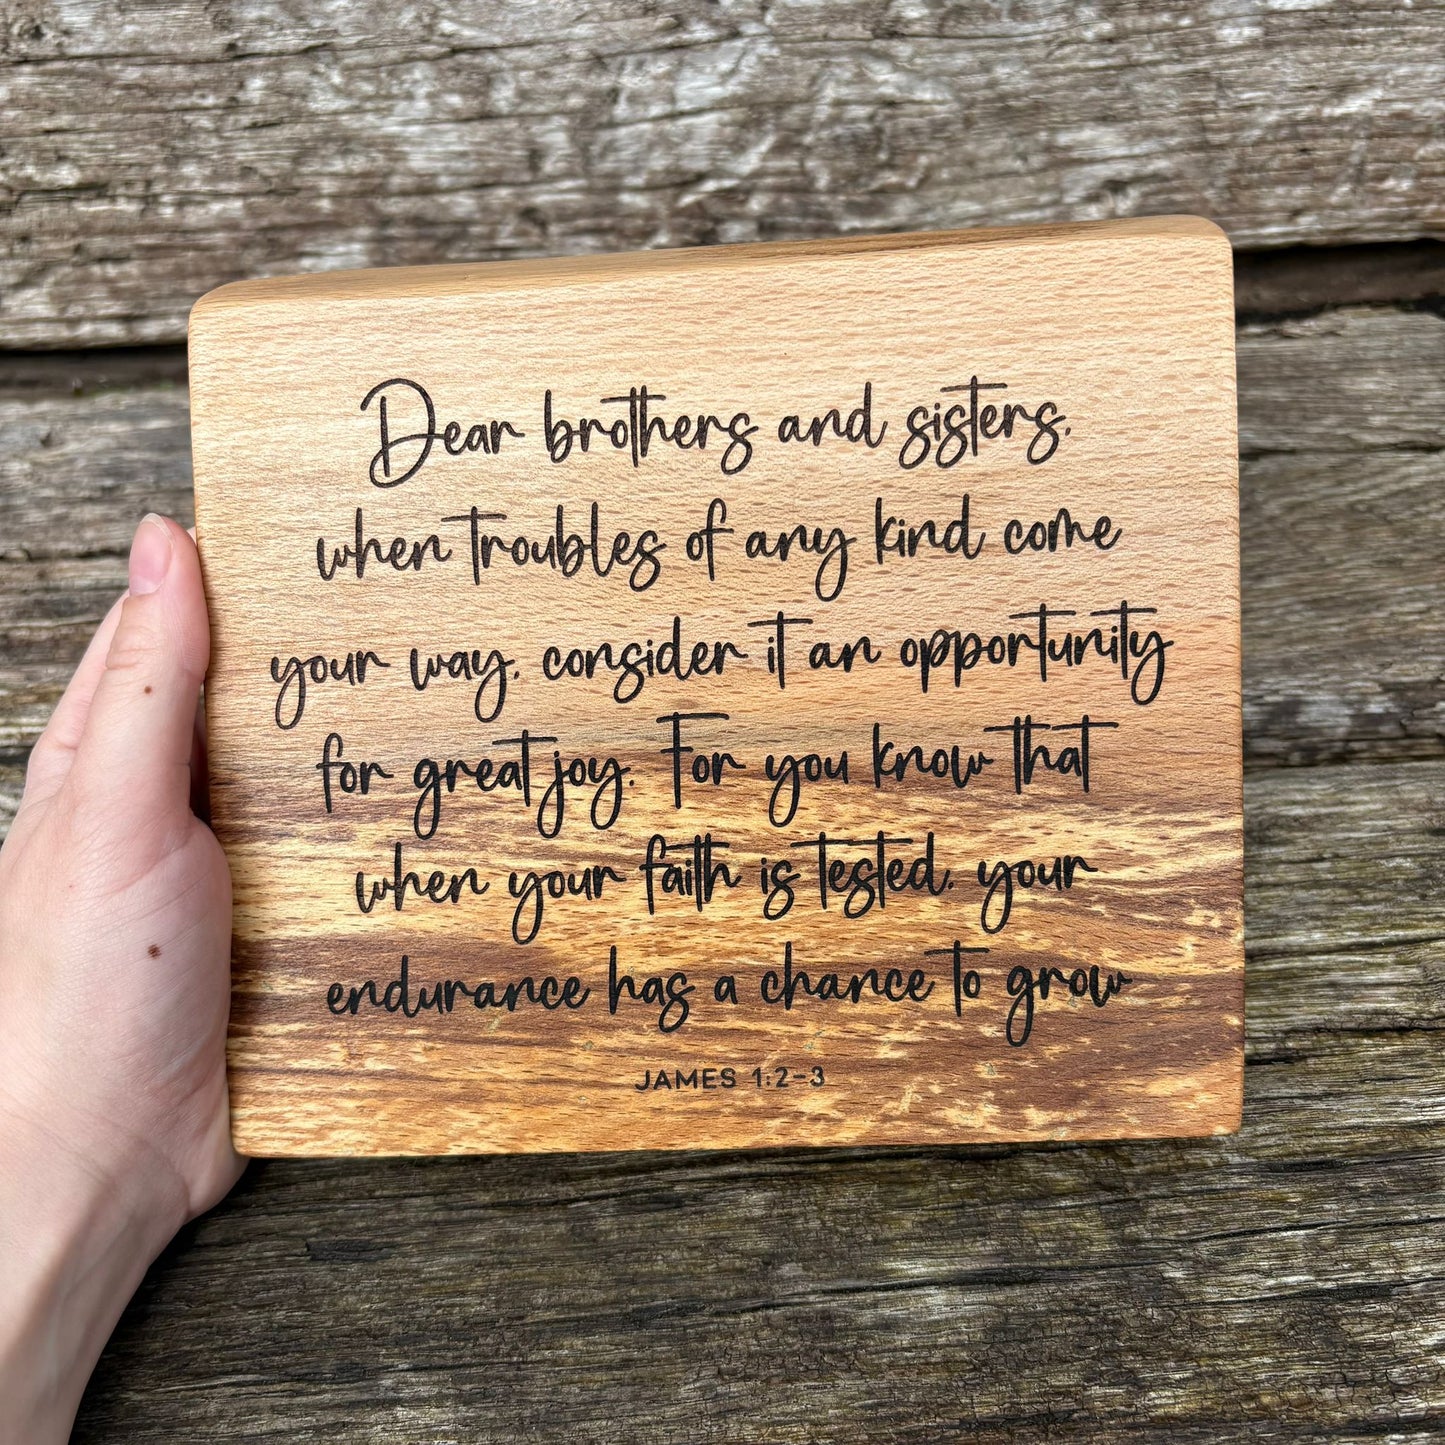 Dear brothers and sisters,
when troubles of any kind come
your way, consider it an opportunity
for great joy. For you know that
when your faith is tested, your
endurance has a chance to grow
JAMES 1:2-3